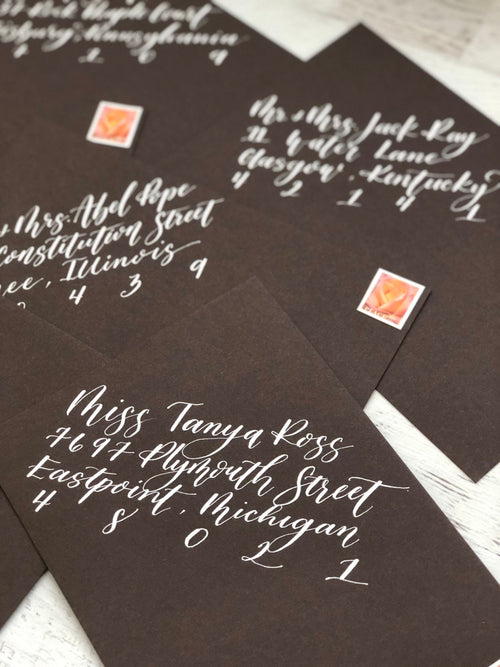 Court
Pennsylvania
4 2 0 9
Mr. & Mrs. Jack Ray
21 Water Lane
Glasgow, Kentucky
4 2 1 4 1
Mrs. Abel Pope
Constitution Street
Illinois
4 3 9
Miss Tanya Ross
7697 Plymouth Street
Eastpoint, Michigan
4 8 0 2 1